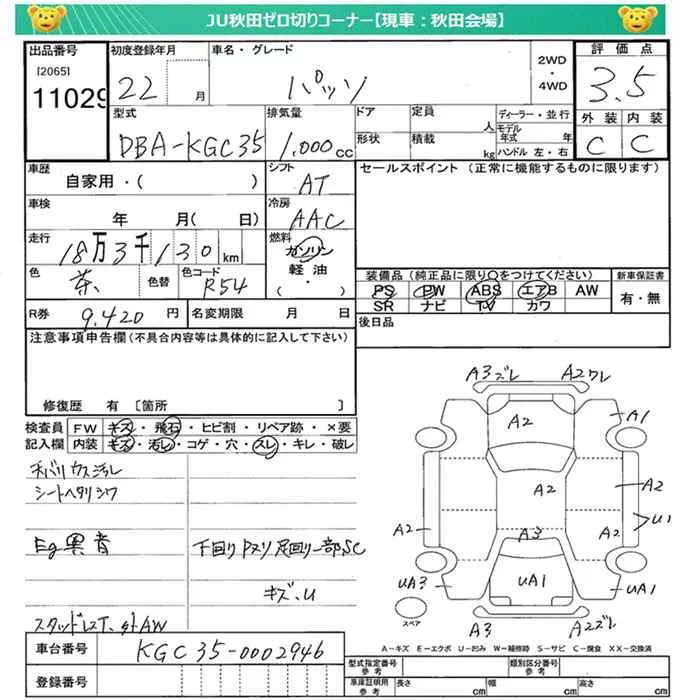 JU秋田ゼロ切りコーナー【現車：秋田会場】
出品番号
[2065]
11029
初度登録年月
22 月
車名・グレード
パッソ
2WD
・
4WD
評価点
3.5
型式
DBA-KGC35
排気量
1,000cc
ドア
形状
定員
人
積載
kg
ディーラー・並行
モデル年式 年
ハンドル 左・右
外装 内装
C C
車歴
自家用・( )
シフト
AT
セールスポイント (正常に機能するものに限ります)
車検
年 月( 日)
冷房
AAC
走行
18万3千130km
燃料
ガソリン
軽油・
( )
色
茶
色替
色コード
R54
装備品 (純正品に限り〇をつけてください)
PS PW ABS エアB AW
SR ナビ TV カワ
新車保証書
有・無
R券 9,420円
名変期限 月 日
後日品
注意事項申告欄(不具合内容等は具体的に記入して下さい)
修復歴 有 [箇所 ]
検査員
記入欄
FW キズ・飛石・ヒビ割・リペア跡・×要
内装 キズ・汚レ・コゲ・穴・スレ・キレ・破レ
シートヘタリシワ
Eg異音
下回りPスリ 足回り一部SC
キズ、U
スタッドレスT、社外AW
A3ズレ
A2ワレ
A2
A1
A2
A2
U1
A2
A2
A3
UA3
UA1
UA1
A3
A2ズレ
スペア
A-キズ E-エクボ U-凹み W-補修跡 S-サビ C-腐食 XX-交換済
車台番号
KGC35-0002946
登録番号
型式指定番号
参考
類別区分番号
参考
車庫証明用
参考
長さ cm
幅 cm
高さ cm